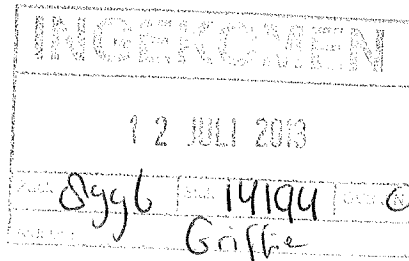 INGEKOMEN
12 JULI 2013
8996 14194
Griffie